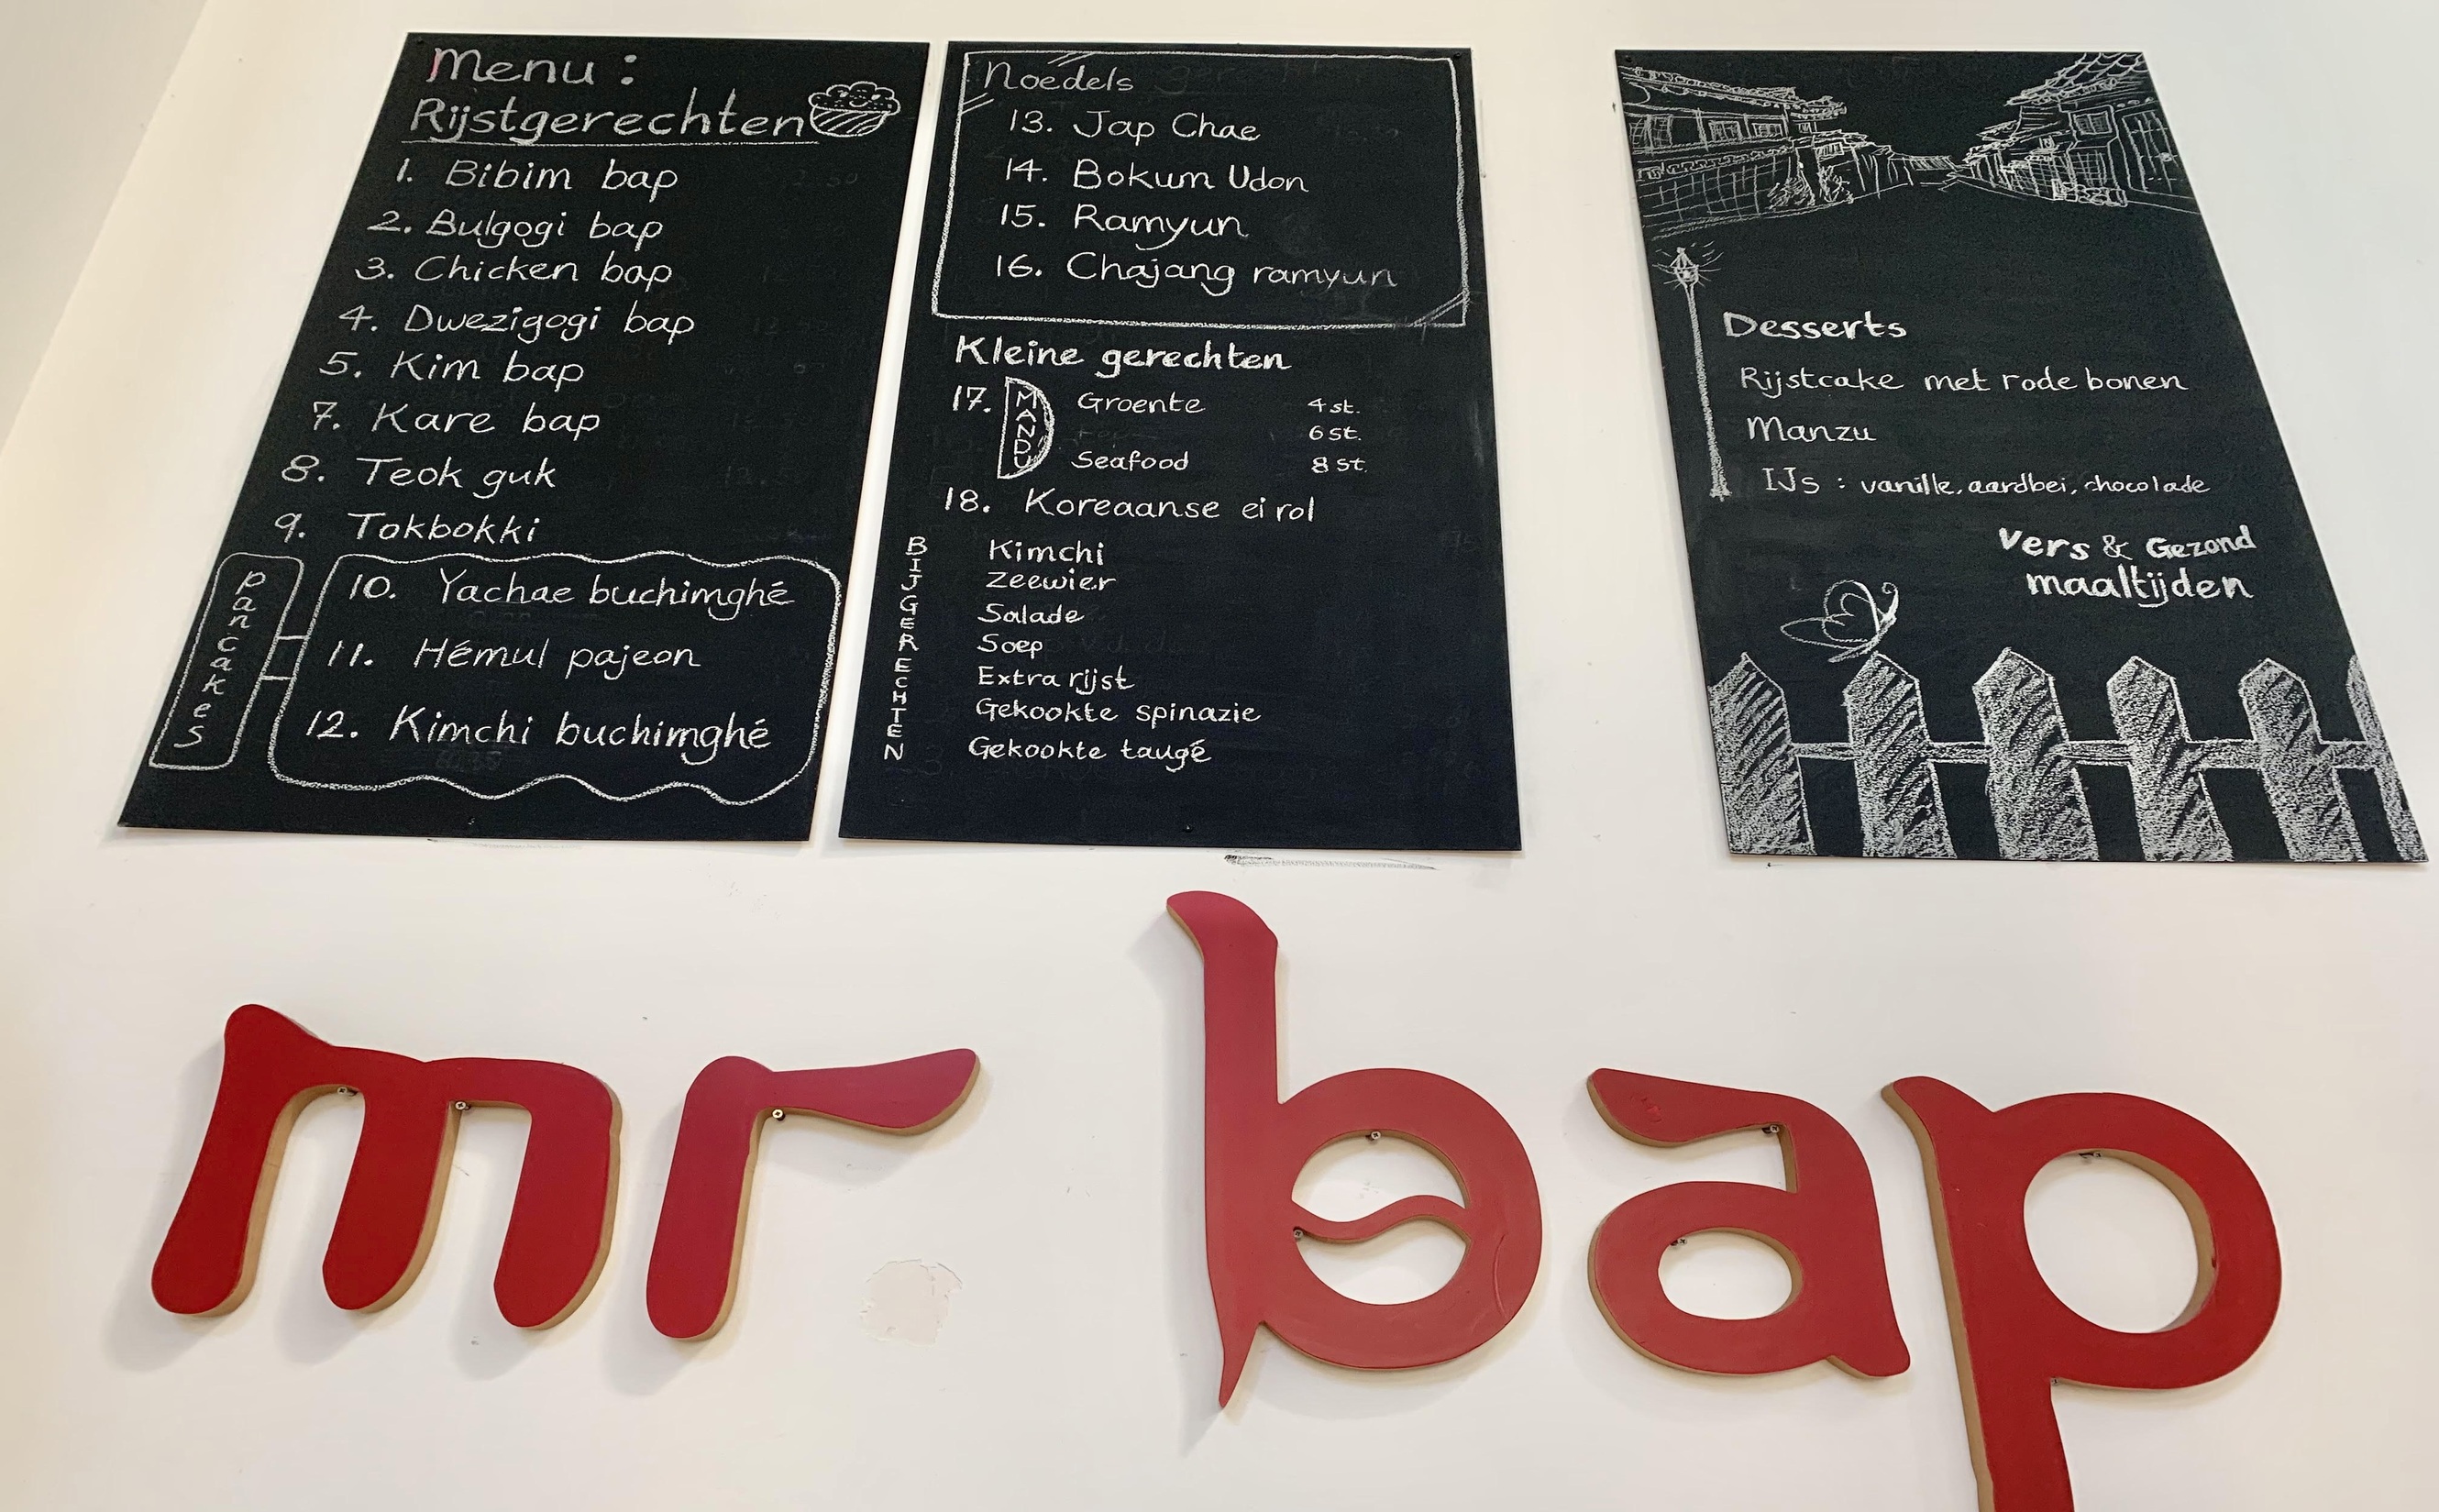 Menu :
Rijstgerechten
1. Bibim bap
2. Bulgogi bap
3. Chicken bap
4. Dwezigogi bap
5. Kim bap
7. Kare bap
8. Teok guk
9. Tokbokki
Pancakes
10. Yachae buchimghé
11. Hémul pajeon
12. Kimchi buchimghé
Noedels
13. Jap Chae
14. Bokum Udon
15. Ramyun
16. Chajang ramyun
Kleine gerechten
17. MANDU
Groente 4 st.
6 st.
Seafood 8 st.
18. Koreaanse ei rol
BIJGERECHTEN
Kimchi
Zeewier
Salade
Soep
Extra rijst
Gekookte spinazie
Gekookte taugé
Desserts
Rijstcake met rode bonen
Manzu
IJs : vanille, aardbei, chocolade
Vers & Gezond
maaltijden
mr bap